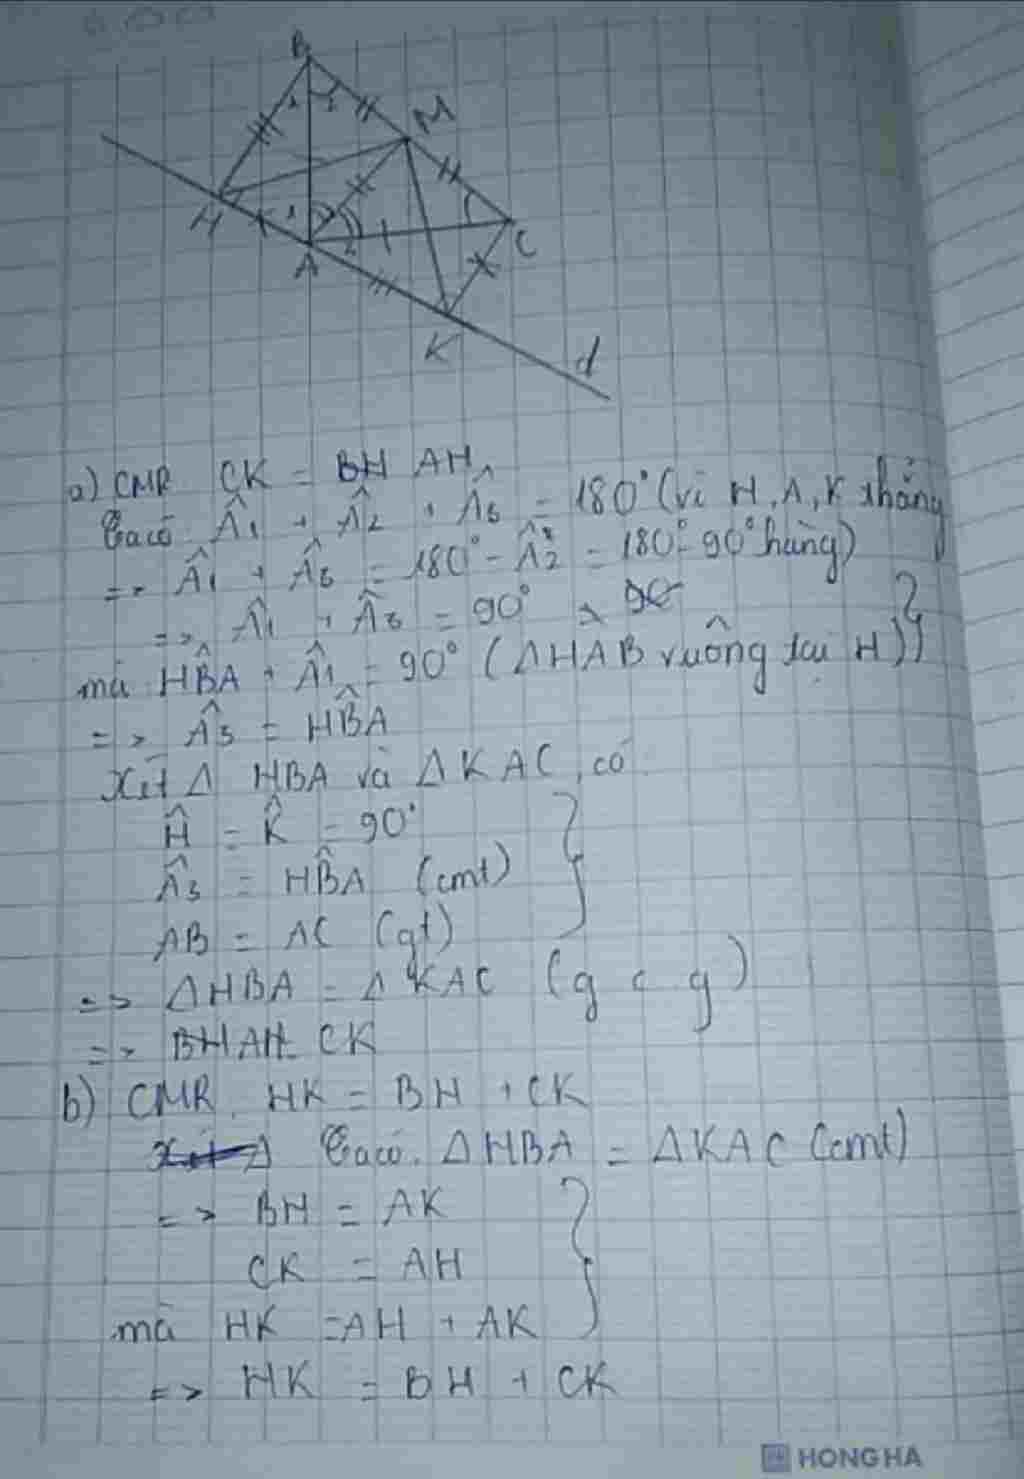 B
M
H
A
C
K
d
a) CMR CK = AH
Ta có Â1 + Â2 + Â3 = 180° (vì H, A, K thẳng hàng)
=> Â1 + Â3 = 180° - Â2 = 180° - 90°
=> Â1 + Â3 = 90°
mà HB̂A + Â1 = 90° (ΔHAB vuông tại H)
=> Â3 = HB̂A
Xét Δ HBA và Δ KAC, có
Ĥ = K̂ = 90°
Â3 = HB̂A (cmt)
AB = AC (gt)
=> ΔHBA = Δ KAC (g c g)
=> AH = CK
b) CMR. HK = BH + CK
Ta có. ΔHBA = ΔKAC (cmt)
=> BH = AK
CK = AH
mà HK = AH + AK
=> HK = BH + CK
HONG HA